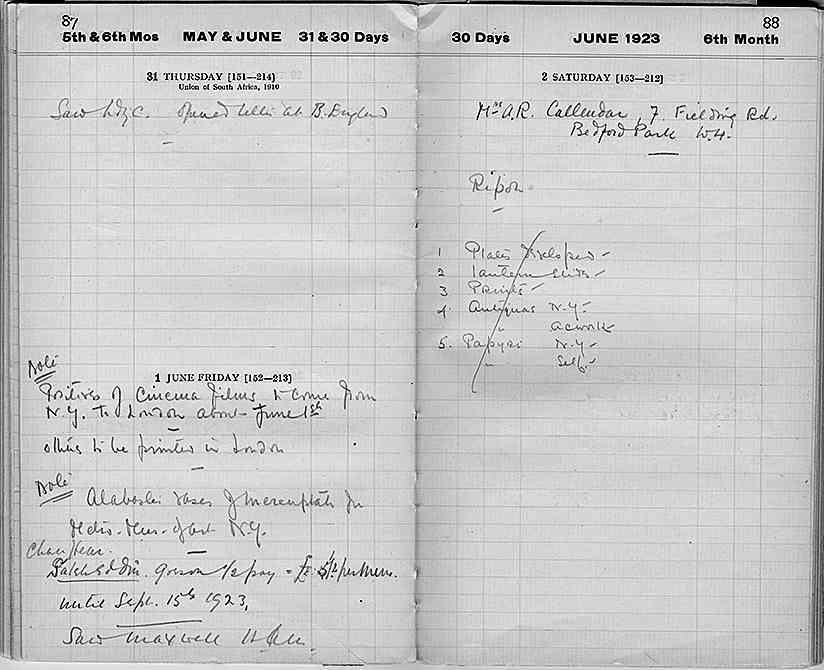 87
5th & 6th Mos MAY & JUNE 31 & 30 Days
31 THURSDAY [151—214]
Union of South Africa, 1910
Saw opened at B. England
Note
1 JUNE FRIDAY [152—213]
Positives of Cinema films to come from
N.Y. to London about June 1st
others to be printed in London
Note
Alabaster vases of Merenptah for
Metro. Mus. of Art N.Y.
Chauffeur.
Salah Ed Din. on 1/2 pay = £ per Mens.
until Sept. 15th 1923.
Saw Maxwell
88
30 Days JUNE 1923 6th Month
2 SATURDAY [153—212]
Mrs A.R. Callendar, 7. Fielding Rd.
Bedford Park W.4.
Ripon
1 Plates developed -
2 lantern slides -
3 Prints -
4 Antiquas N.Y. -
"
5. Papyri N.Y. -
" Self. -